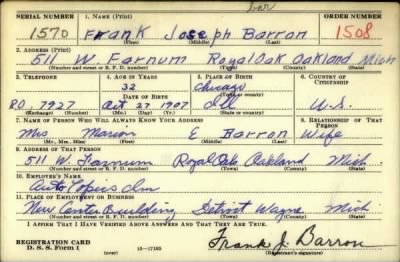 Bar
SERIAL NUMBER 1. NAME (Print) ORDER NUMBER
1570 Frank Joseph Barron 1508
(First) (Middle) (Last)
2. ADDRESS (Print)
511 W. Farnum Royal Oak Oakland Mich
(Number and street or R. F. D. number) (Town) (County) (State)
3. TELEPHONE 4. AGE IN YEARS 5. PLACE OF BIRTH 6. COUNTRY OF CITIZENSHIP
32 Chicago
DATE OF BIRTH (Town or county)
R.O. 7927 Oct 27 1907 Ill U.S.
(Exchange) (Number) (Mo.) (Day) (Yr.) (State or country)
7. NAME OF PERSON WHO WILL ALWAYS KNOW YOUR ADDRESS 8. RELATIONSHIP OF THAT PERSON
Mrs Marion E Barron Wife
(Mr., Mrs., Miss) (First) (Middle) (Last)
9. ADDRESS OF THAT PERSON
511 W. Farnum Royal Oak Oakland Mich.
(Number and street or R. F. D. number) (Town) (County) (State)
10. EMPLOYER'S NAME
Auto Topics
11. PLACE OF EMPLOYMENT OR BUSINESS
New Center Building Detroit Wayne Mich.
(Number and street or R. F. D. number) (Town) (County) (State)
I AFFIRM THAT I HAVE VERIFIED ABOVE ANSWERS AND THAT THEY ARE TRUE.
REGISTRATION CARD
D. S. S. Form 1 (over) 16-17105 Frank J. Barron
(Registrant's signature)